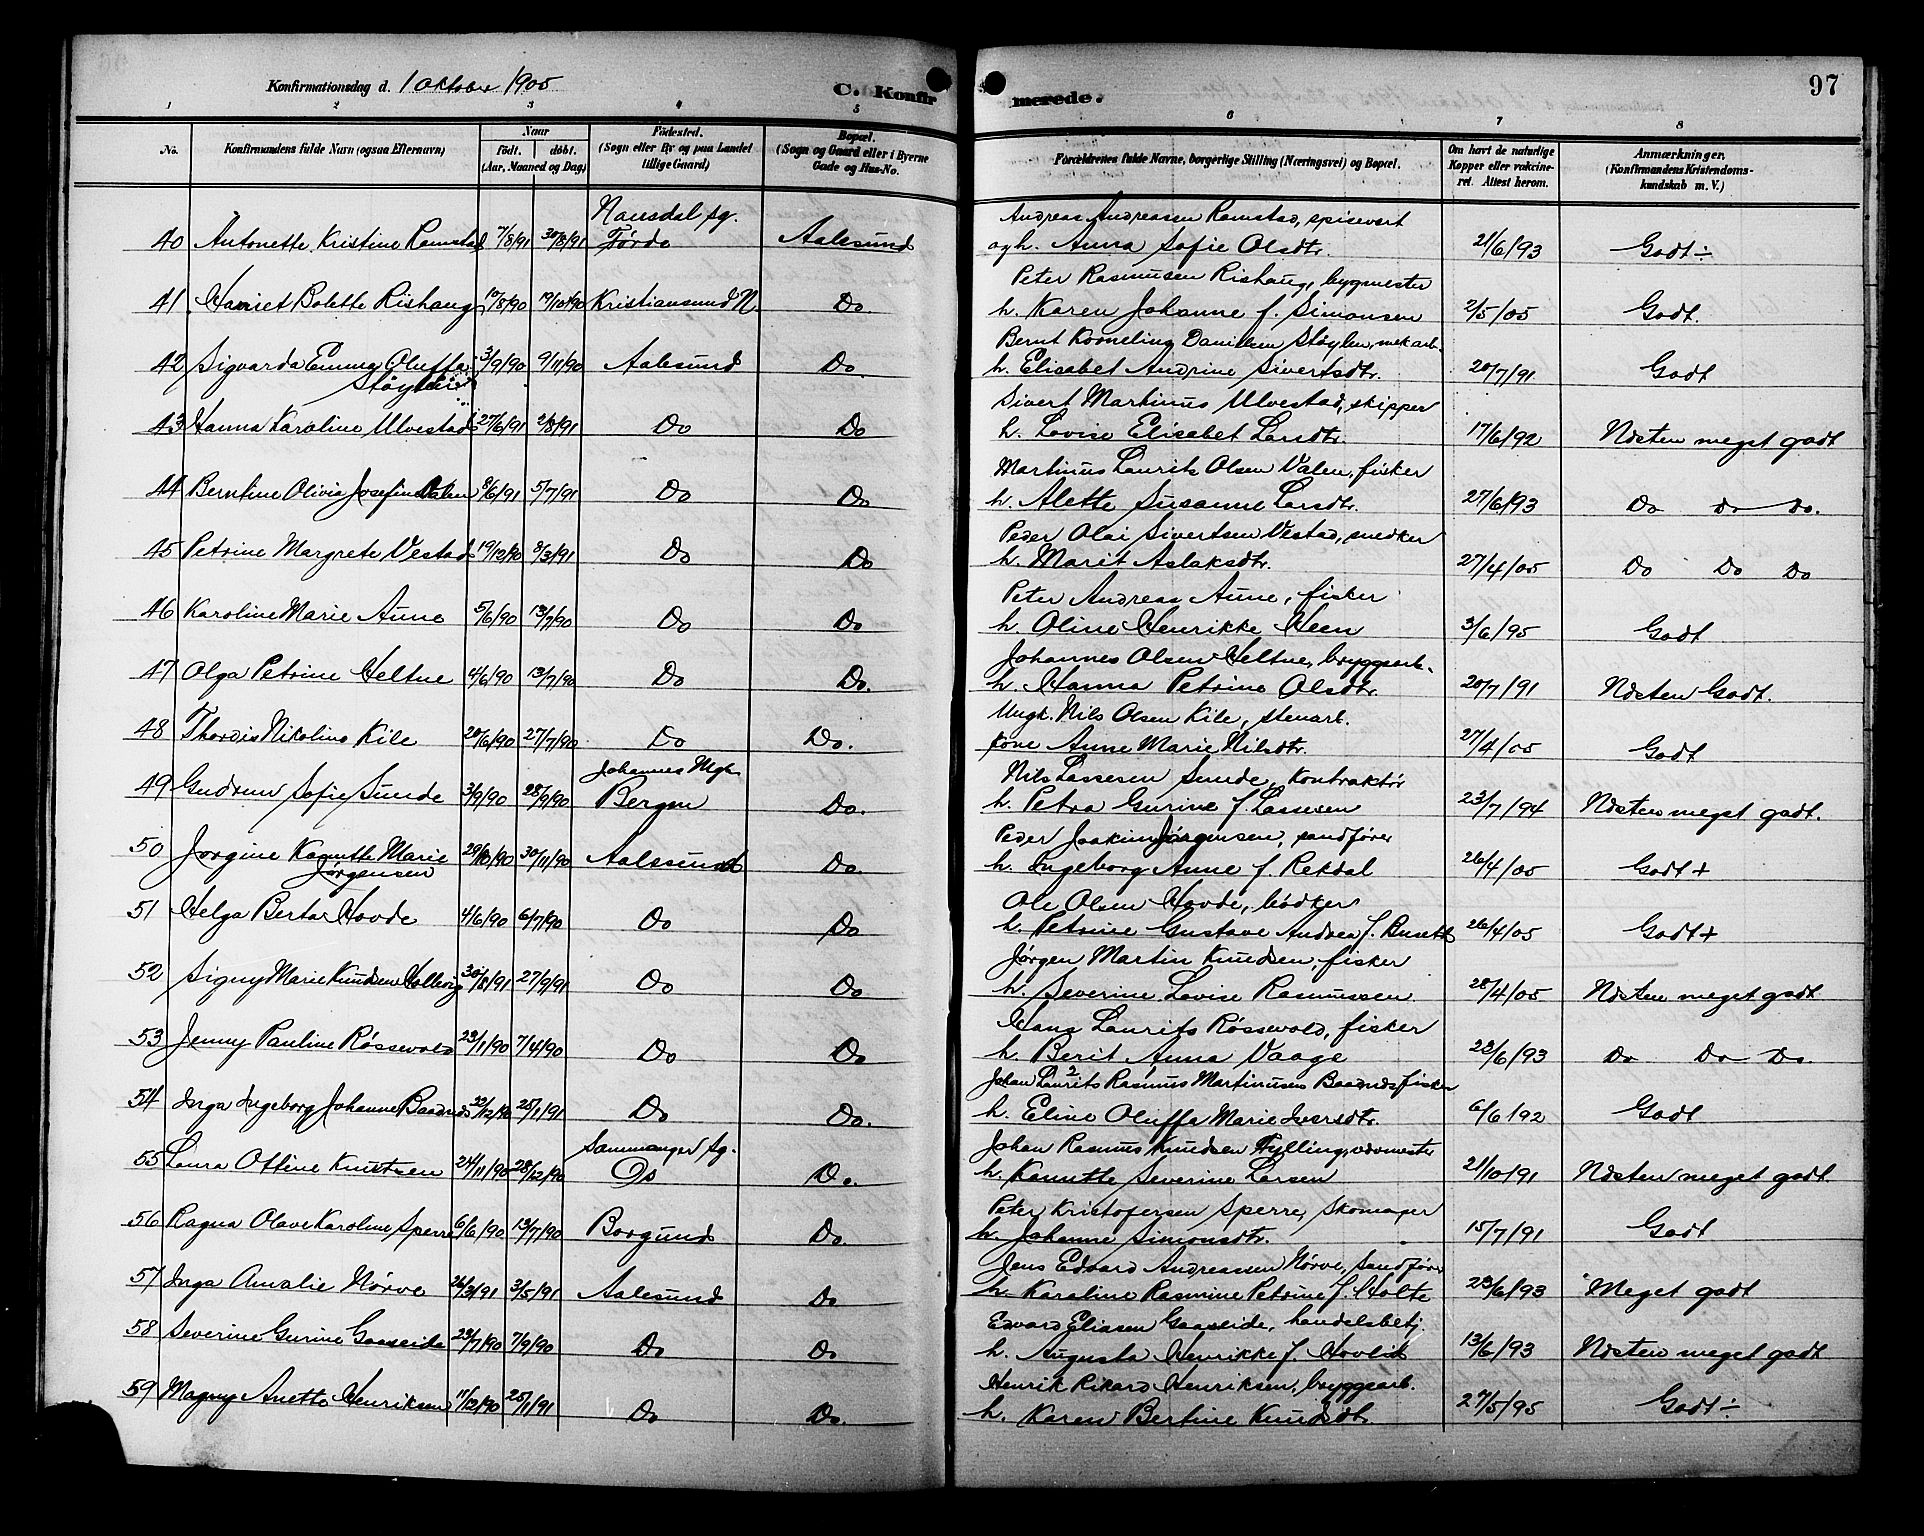 Konfirmationsdag d. 1 Oktober 1905
C. Konfirmerede.
97
1 2 3 4 5 6 7 8
No.
Konfirmandens fulde Navn (ogsaa Efternavn)
Naar
født. døbt.
(Aar, Maaned og Dag)
Fødested.
(Sogn eller By og paa Landet
tillige Gaard)
Bopæl.
(Sogn og Gaard eller i Byerne
Gade og Hus-No.
Forældrenes fulde Navne, borgerlige Stilling (Næringsvei) og Bopæl.
Om havt de naturlige
Kopper eller vakcine-
ret. Attest herom.
Anmærkninger.
(Konfirmandens Kristendoms-
kundskab m. V.)
Nausdal sg. Andreas Andreasen Ramstad, spisevert
40 Antonette Kristine Ramstad 7/8/91 30/8/91 Førde Aalesund og h. Anna Sofie Olsdtr. 21/6/93 Godt ÷
Peter Rasmusen Rishaug, bygmester
41 Harriet Bolette Rishaug 10/8/90 19/10/90 Kristiansund N. Do. h. Karen Johanne f. Simonsen 2/5/05 Godt.
Bernt Korneling Danielsen Støylen, mek arb.
42 Sigvarda Emma Oluffa 3/9/90 9/11/90 Aalesund Do. h. Elisabet Andrine Sivertsdtr. 20/7/91 Godt
Støylen
Sivert Martinus Ulvestad, skipper
43 Hanna Karoline Ulvestad 27/6/91 2/8/91 Do Do h. Lovise Elisabet Larsdtr. 17/6/92 Næsten meget godt
Martinus Laurits Olsen Valen, fisker
44 Berntine Olivia Josefine Valen 8/6/91 5/7/91 Do Do h. Alette Susanne Larsdtr. 27/6/93 Do Do Do.
Peder Olai Sivertsen Vestad, snedker
45 Petrine Margrete Vestad 19/12/90 8/3/91 Do Do h. Marit Aslaksdtr. 27/4/05 Do Do Do
Peter Andreas Aune, fisker
46 Karoline Marie Aune 5/6/90 13/7/90 Do Do h. Oline Henrikke Heen 3/6/95 Godt
Johannes Olsen Heltne, bryggearb.
47 Olga Petrine Heltne 4/6/90 13/7/90 Do Do. h. Hanna Petrine Olsdtr. 20/7/91 Næsten Godt.
Ungk. Nils Olsen Kile, stenarb.
48 Thordis Nikoline Kile 20/6/90 27/7/90 Do Do. kone Anne Marie Nilsdtr. 27/4/05 Godt
Johannes Mgh. Nils Lassesen Sunde, Kontraktør
49 Gudrun Sofie Sunde 3/9/90 28/9/90 Bergen Do. h. Petra Gurine f. Lassesen 23/7/94 Næsten meget godt.
Peder Joakim Jørgensen, sandfører
50 Jørgine Kanutte Marie 29/10/90 30/11/90 Aalesund Do. h. Ingeborg Anne f. Rekdal 26/4/05 Godt +
Jørgensen
Ole Olsen Hovde, bødker
51 Helga Berta Hovde 4/6/90 6/7/90 Do Do h. Petrine Gustave Andrea f. Buseth 26/4/05 Godt +
Jørgen Martin Knudsen, fisker
52 Signy Marie Knudsen Hollevig 30/8/91 27/9/91 Do Do h. Severine Lovise Rasmussen 28/4/05 Næsten meget godt
Hans Laurits Røssevold, fisker
53 Jenny Pauline Røssevold 23/1/90 7/4/90 Do Do h. Berit Anna Vaage 23/6/93 Do Do Do.
Johan Laurits Rasmus Martinusen Baadnes fisker
54 Inga Ingeborg Johanne Baadnes 22/12/90 25/1/91 Do Do. h. Eline Oluffa Marie Iversdtr. 6/6/92 Godt
Sammanger sg. Johan Rasmus Knudsen Hylling,
55 Laura Ottine Knutsen 24/11/90 28/12/90 Os Do. h. Kanutte Severine Larsen 21/10/91 Næsten meget godt
Peter Kristofersen Sperre, Skomager
56 Ragna Olave Karoline Sperre 6/6/90 13/7/90 Borgund Do. h. Johanne Simonsdtr. 15/7/91 Godt
Jens Edvard Andreassen Nørve, Sandfører
57 Inga Amalie Nørve 26/3/91 3/5/91 Aalesund Do h. Karoline Rasmine Petrine f. Holte 23/6/93 Meget godt
Edvard Eliasen Gaaseide, handelsbetj.
58 Severine Gurine Gaaseide 23/7/90 7/9/90 Do Do h. Augusta Henrikke f. Hovlid 13/6/93 Næsten meget godt
Henrik Rikard Henriksen, bryggearb.
59 Magny Anette Henriksen 11/12/90 25/1/91 Do Do. h. Karen Bertine Knudsdtr. 27/5/95 Godt ÷